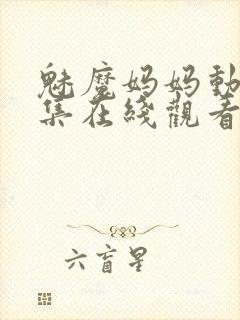 魅魔妈妈動
集在綫觀看
六盲星